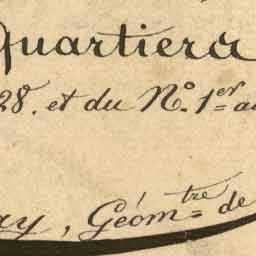 Quartiera
28. et du N.º 1.er au
ay, Géom.tre de